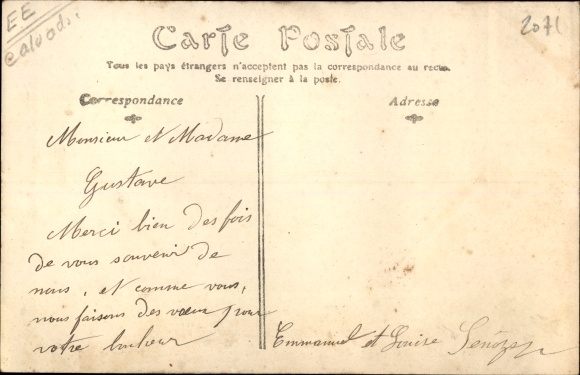 EE
Calvados.
2071
Carte Postale
Tous les pays étrangers n'acceptent pas la correspondance au recto.
Se renseigner à la poste.
Correspondance
Adresse
Monsieur et Madame
Gustave
Merci bien des fois
de vous souvenir de
nous, et comme vous,
nous faisons des vœux pour
votre bonheur
Emmanuel et Louise